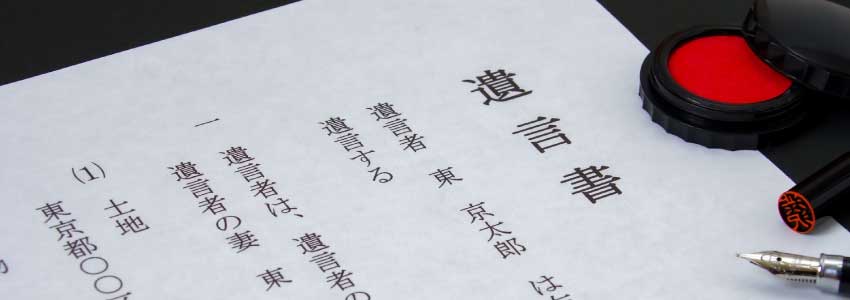 遺言書
遺言者 東 京太郎 は
遺言する
一 遺言者は、遺言者の
遺言者の妻 東
(1) 土地
東京都〇〇